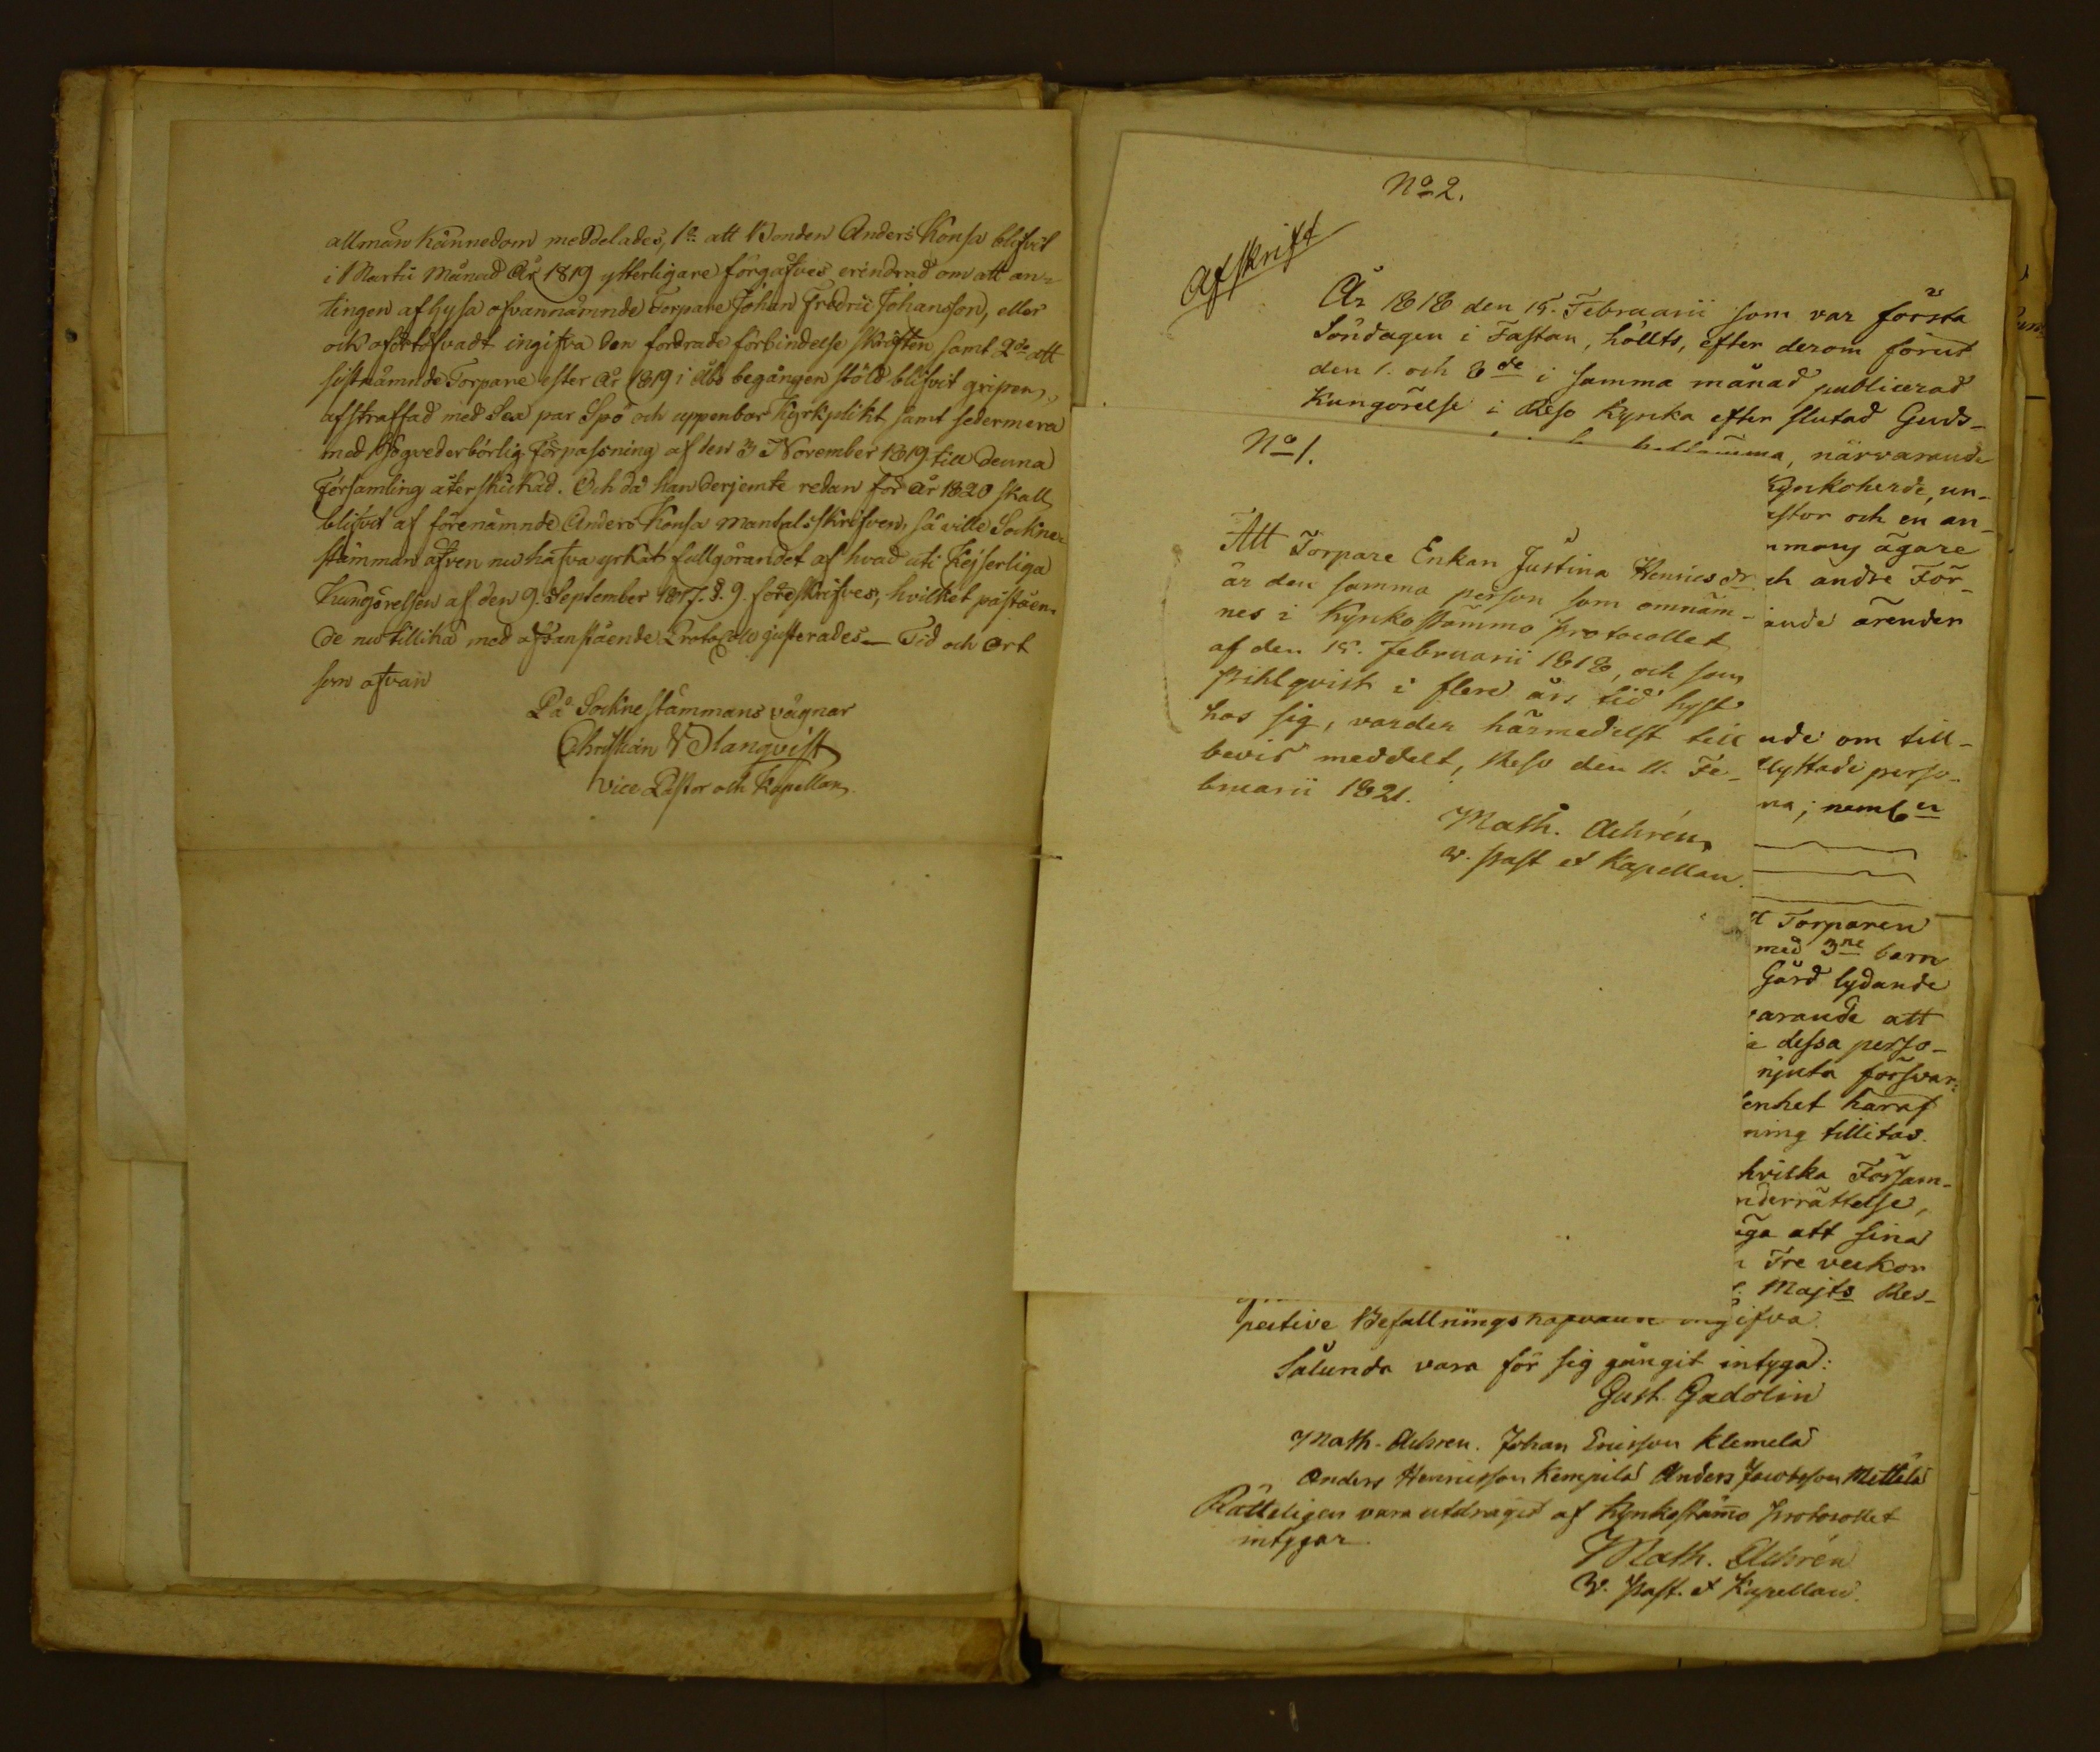 allmän kännedom meddelades, 1o att Bonden Anders Konsa blifvit
i Martii Månad År 1819 ytterligare förgäfves erindrad om att an-
tingen afhysa ofvannämnde Torpare Johan Fredric Johansson, eller
ock oförtöfvadt ingifva den fordrade förbindelse skriften, samt 2do att
sistnämnde Torpare efter År 1819 i Åbo begången stöld blifvit gripen,
afstraffad med Sex par Spö och uppenbar Kyrkplikt samt sedermera
med högvederbörlig Förpassning af den 3 November 1819 till denna
Församling återskickad. Och då han derjemte redan för År 1820 skall
blifvit af förenämnde Anders Konsa mantalsskrifven, så ville Sockne-
stämman äfven nu hafva yrkat fullgörandet af hvad uti Kejserliga
Kungörelsen af den 9. September 1817. §. 9. föreskrifves, hvilket påståen-
de nu tillika med ofvanstående Protocoll justerades — Tid och Ort
som ofvan
På Sockne stämmans vägnar
Christian
vice Pastor och Kapellan
No 2.
Afskrift
År 1818 den 15. Februarii som var första
Söndagen i Fastan, hölls, efter derom förut
den 1. och 8de i samma månad publicerad
Kungörelse i Reso Kyrka efter slutad Guds-
närvarande
Kyrkoherde, un-
astor och en an-
ägare
ch andre För-
ande ärenden
nde om till-
flyttade perso-
na; neml:n
t Torparen
med 3ne barn
Gård lydande
varande att
dessa perso-
njuta försvar:
enhet häraf
ning tillitas.
hvilka Försam-
nderrättelse,
äga att sina
Tre veckor
Majts Res-
pective Befallningshafvande ingifva.
Sålunda vara för sig gångit intyga:
Gust. Gadolin
Math. Achrén. Johan Ericsson Klemelä
Anders Henricsson Kempilä Anders Jacobsson Mettälä
Rätteligen vara utdragit af Kyrkostämo Protocollet
intygar
Math. Achrén
V. Past. et Kapellan.
No 1.
Att Torpare Enkan Justina Henricsdr
är den samma person som omnäm-
nes i Kyrkostämmo Protocollet
af den 15. Februarii 1818, och som
Pihlqvist i flere års tid hyst
hos sig, varder härmedelst till
bevis meddelt, Reso den 11. Fe-
bruarii 1821.
Math. Achrén,
v. Past et Kapellan.